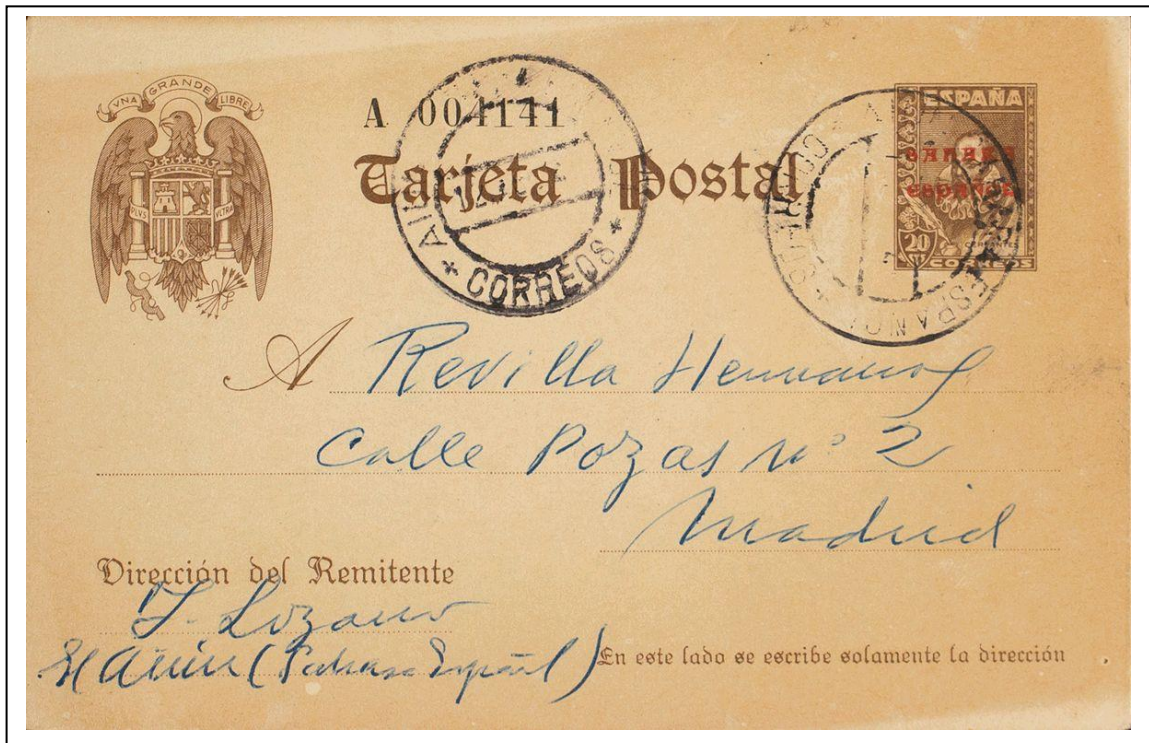 VNA GRANDE LIBRE
PLVS VLTRA
A 004141
Tarjeta Postal
ESPAÑA
SAHARA
ESPAÑOL
20
CTS
CERVANTES
CORREOS
CORREOS
ESPAÑOL
A Revilla Hermanos
Calle Pozas nº 2
Madrid
Dirección del Remitente
Lozano
El Aiún (Sahara Español)
En este lado se escribe solamente la dirección